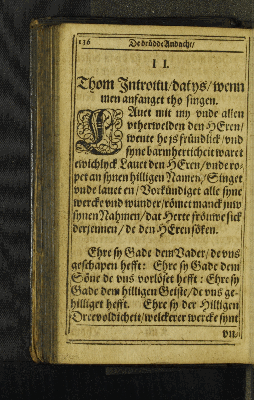 136 De drüdde Andacht/
II.
Thom Introitu/dat ys/wenn
men anfanget tho singen.
Lavet mit my vnde allen
vtherwelden den HEren/
wente he js fründlick/vnd
syne barmherticheit waret
ewichlyck Lauet den HEren/vnde ro-
pet an synen hilligen Namen/Singet
vnde lauet en/Vorkündiget alle syne
wercke vnd wunder/römet manck juw
synen Nahmen/dat Herte fröuwe sick
der jennen/de den HEren söken.
Ehre sy Gade dem Vader/de vns
geschapen hefft: Ehre sy Gade dem
Söne de vns vorlöset hefft: Ehre sy
Gade dem hilligen Geiste/de vns ge-
hilliget hefft. Ehre sy der Hilligen
Dreevoldicheit/welckerer wercke synt
vn-